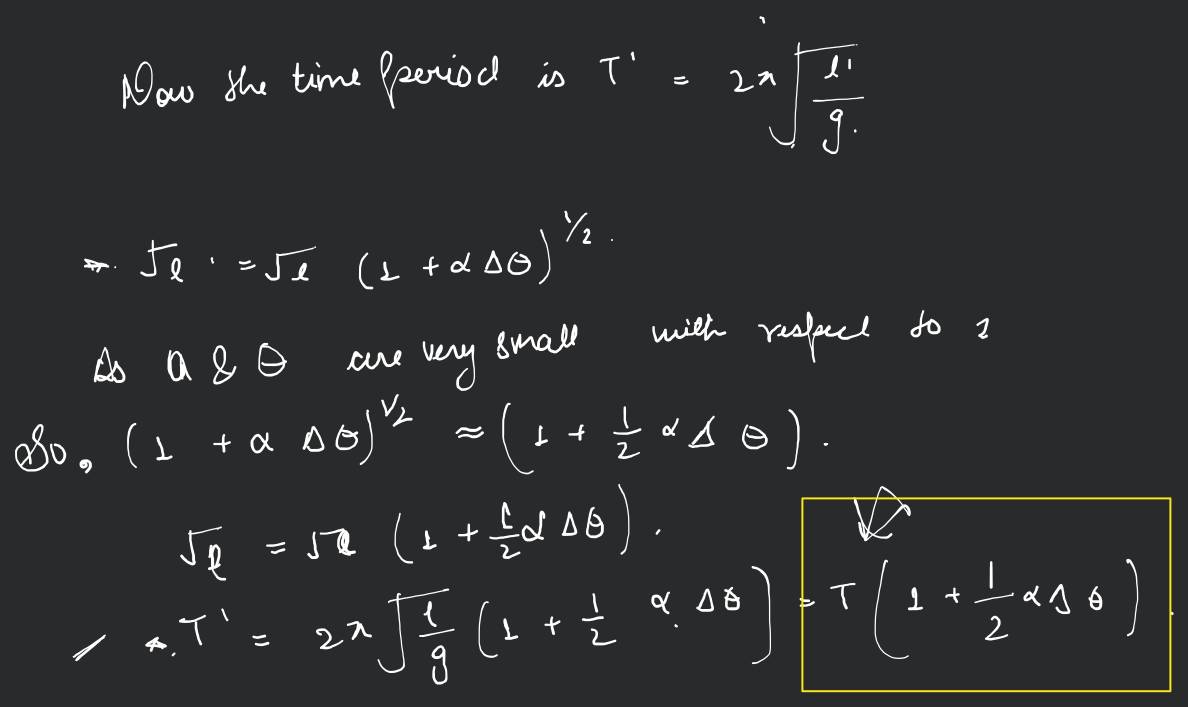 Now the time period is T' = 2π√(l'/g).
∴ √l' = √l (1 + α Δθ)^1/2.
As α & θ are very small with respect to 1
So, (1 + α Δθ)^1/2 ≈ (1 + 1/2 α Δ θ).
√l = √l (1 + 1/2 α Δθ).
∴ T' = 2π√(l/g) (1 + 1/2 α Δθ) = T (1 + 1/2 α Δ θ)